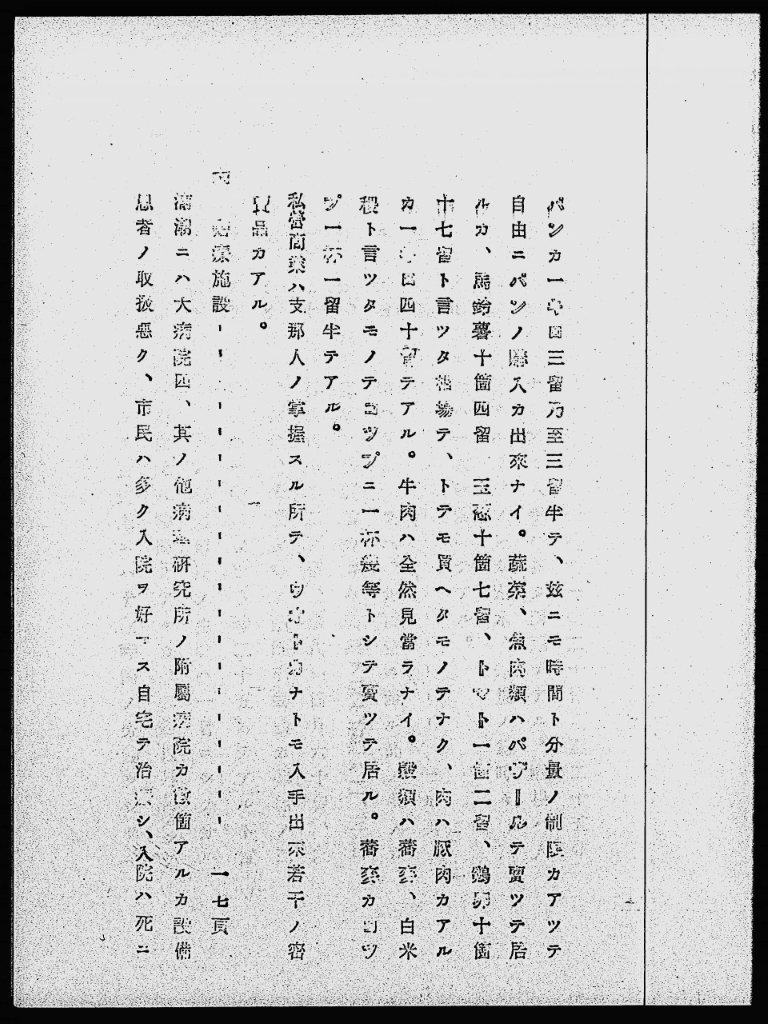 パンカ一キロ三留乃至三留半テ、茲ニモ時間ト分量ノ制限カアツテ
自由ニパンノ購入カ出來ナイ。蔬菜、魚肉類ハバザールテ賣ツテ居
ルカ、馬鈴薯十箇四留 玉葱十箇七留、トマト一箇二留、鷄卵十箇
十七留ト言ツタ相場テ、トテモ買ヘタモノテナク、肉ハ豚肉カアル
カ一キロ四十留テアル。牛肉ハ全然見當ラナイ。穀類ハ蕎麥、白米
稷ト言ツタモノテコツプニ一杯幾等トシテ賣ツテ居ル。蕎麥カコツ
プ一杯一留半テアル。
私營商業ハ支那人ノ掌握スル所テ、ウオトカナトモ入手出來若干ノ密
貿品カアル。
治療施設 一七頁
ニハ大病院四、其ノ他病理研究所ノ附屬病院カ數箇アルカ設備
患者ノ取扱惡ク、市民ハ多ク入院ヲ好マス自宅テ治療シ、入院ハ死ニ